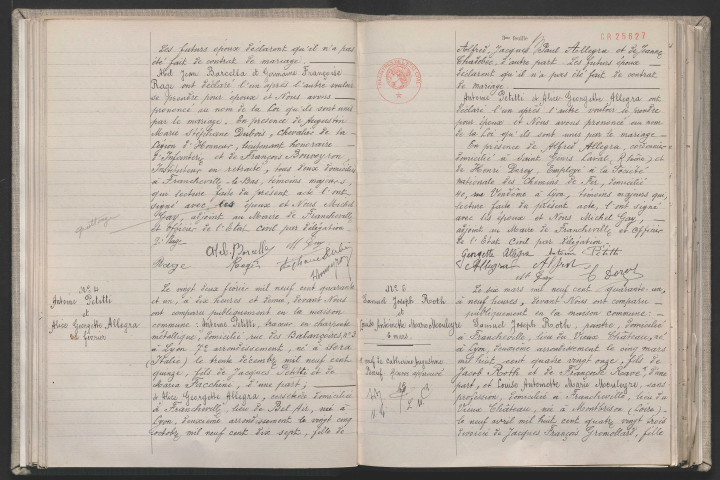 Les futurs époux déclarent qu'il n'a pas
été fait de contrat de mariage.
Abel Jean Barcella et Germaine Françoise
Rage ont déclaré l'un après l'autre vouloir
se prendre pour époux et Nous avons
prononcé au nom de la Loi qu'ils sont unis
par le mariage. En présence de Augustin
Marie Stéphane Dubois, chevalier de la
Légion d'Honneur, lieutenant honoraire
d'Infanterie et de François Bonvoyron
Instituteur en retraite, tous deux domiciliés
à Francheville-le-Bas, témoins majeurs,
que lecture faite du présent acte l'ont
signé avec les époux et Nous Michel
Gay, adjoint au Maire de Francheville
et officier de l'Etat Civil par délégation.
N° 4
Antoine Petitti
et
Alice Georgette Allegra
22 février
Le vingt deux février mil neuf cent quarante
et un, à dix heures et demie, devant Nous
ont comparu publiquement en la maison
commune : Antoine Petitti, traceur en charpente
métallique, domicilié rue des Balançoires N° 3
à Lyon 7e arrondissement, né à Sora
(Italie) le trente décembre mil neuf cent
quinze, fils de Jacques Petitti et de
Maria Facchini, d'une part,
et Alice Georgette Allegra, corsetière domiciliée
à Francheville, lieu de Bel Air, née à
Lyon, deuxième arrondissement le vingt cinq
octobre mil neuf cent dix sept, fille de
3me feuille
CR 25627
Alfred, Jacques, Paul Allegra et de Jeanne
d'autre part. Les futurs époux
déclarent qu'il n'a pas été fait de contrat
de mariage
Antoine Petitti et Alice Georgette Allegra ont
déclaré l'un après l'autre vouloir se prendre
pour époux et Nous avons prononcé au nom
de la Loi qu'ils sont unis par le mariage
En présence de Alfred Allegra,
domicilié à Saint Genis Laval (Rhône) et
de Henri Derey, Employé à la Société
Nationale des Chemins de Fer, domicilié
rue Vendôme à Lyon, témoins majeurs que,
lecture faite du présent acte, l'ont signé
avec les époux et Nous Michel Gay
adjoint au Maire de Francheville et Officier
de l'Etat Civil par délégation
Georgette Allegra Antoine Petitti
Allegra
N° 5
Samuel Joseph Rooth
et
Louise Antoinette Marie Meulegre
6 mars
Le six mars mil neuf cent quarante un,
à neuf heures, devant Nous ont comparu
publiquement en la maison commune :
Samuel Joseph Rooth, peintre, domicilié
à Francheville, lieu du Vieux Château, né
à Lyon, douzième arrondissement le cinq mars
mil huit cent quatre vingt onze, fils de
Jacob Rooth et de Françoise Ravé, d'une
part, et Louise Antoinette Marie Meulegre, sans
profession, domiciliée à Francheville, lieu du
Vieux Château, née à Montbrison (Loire)
le neuf avril mil huit cent quatre vingt trois
divorcée de Jacques François Gromollard, fille